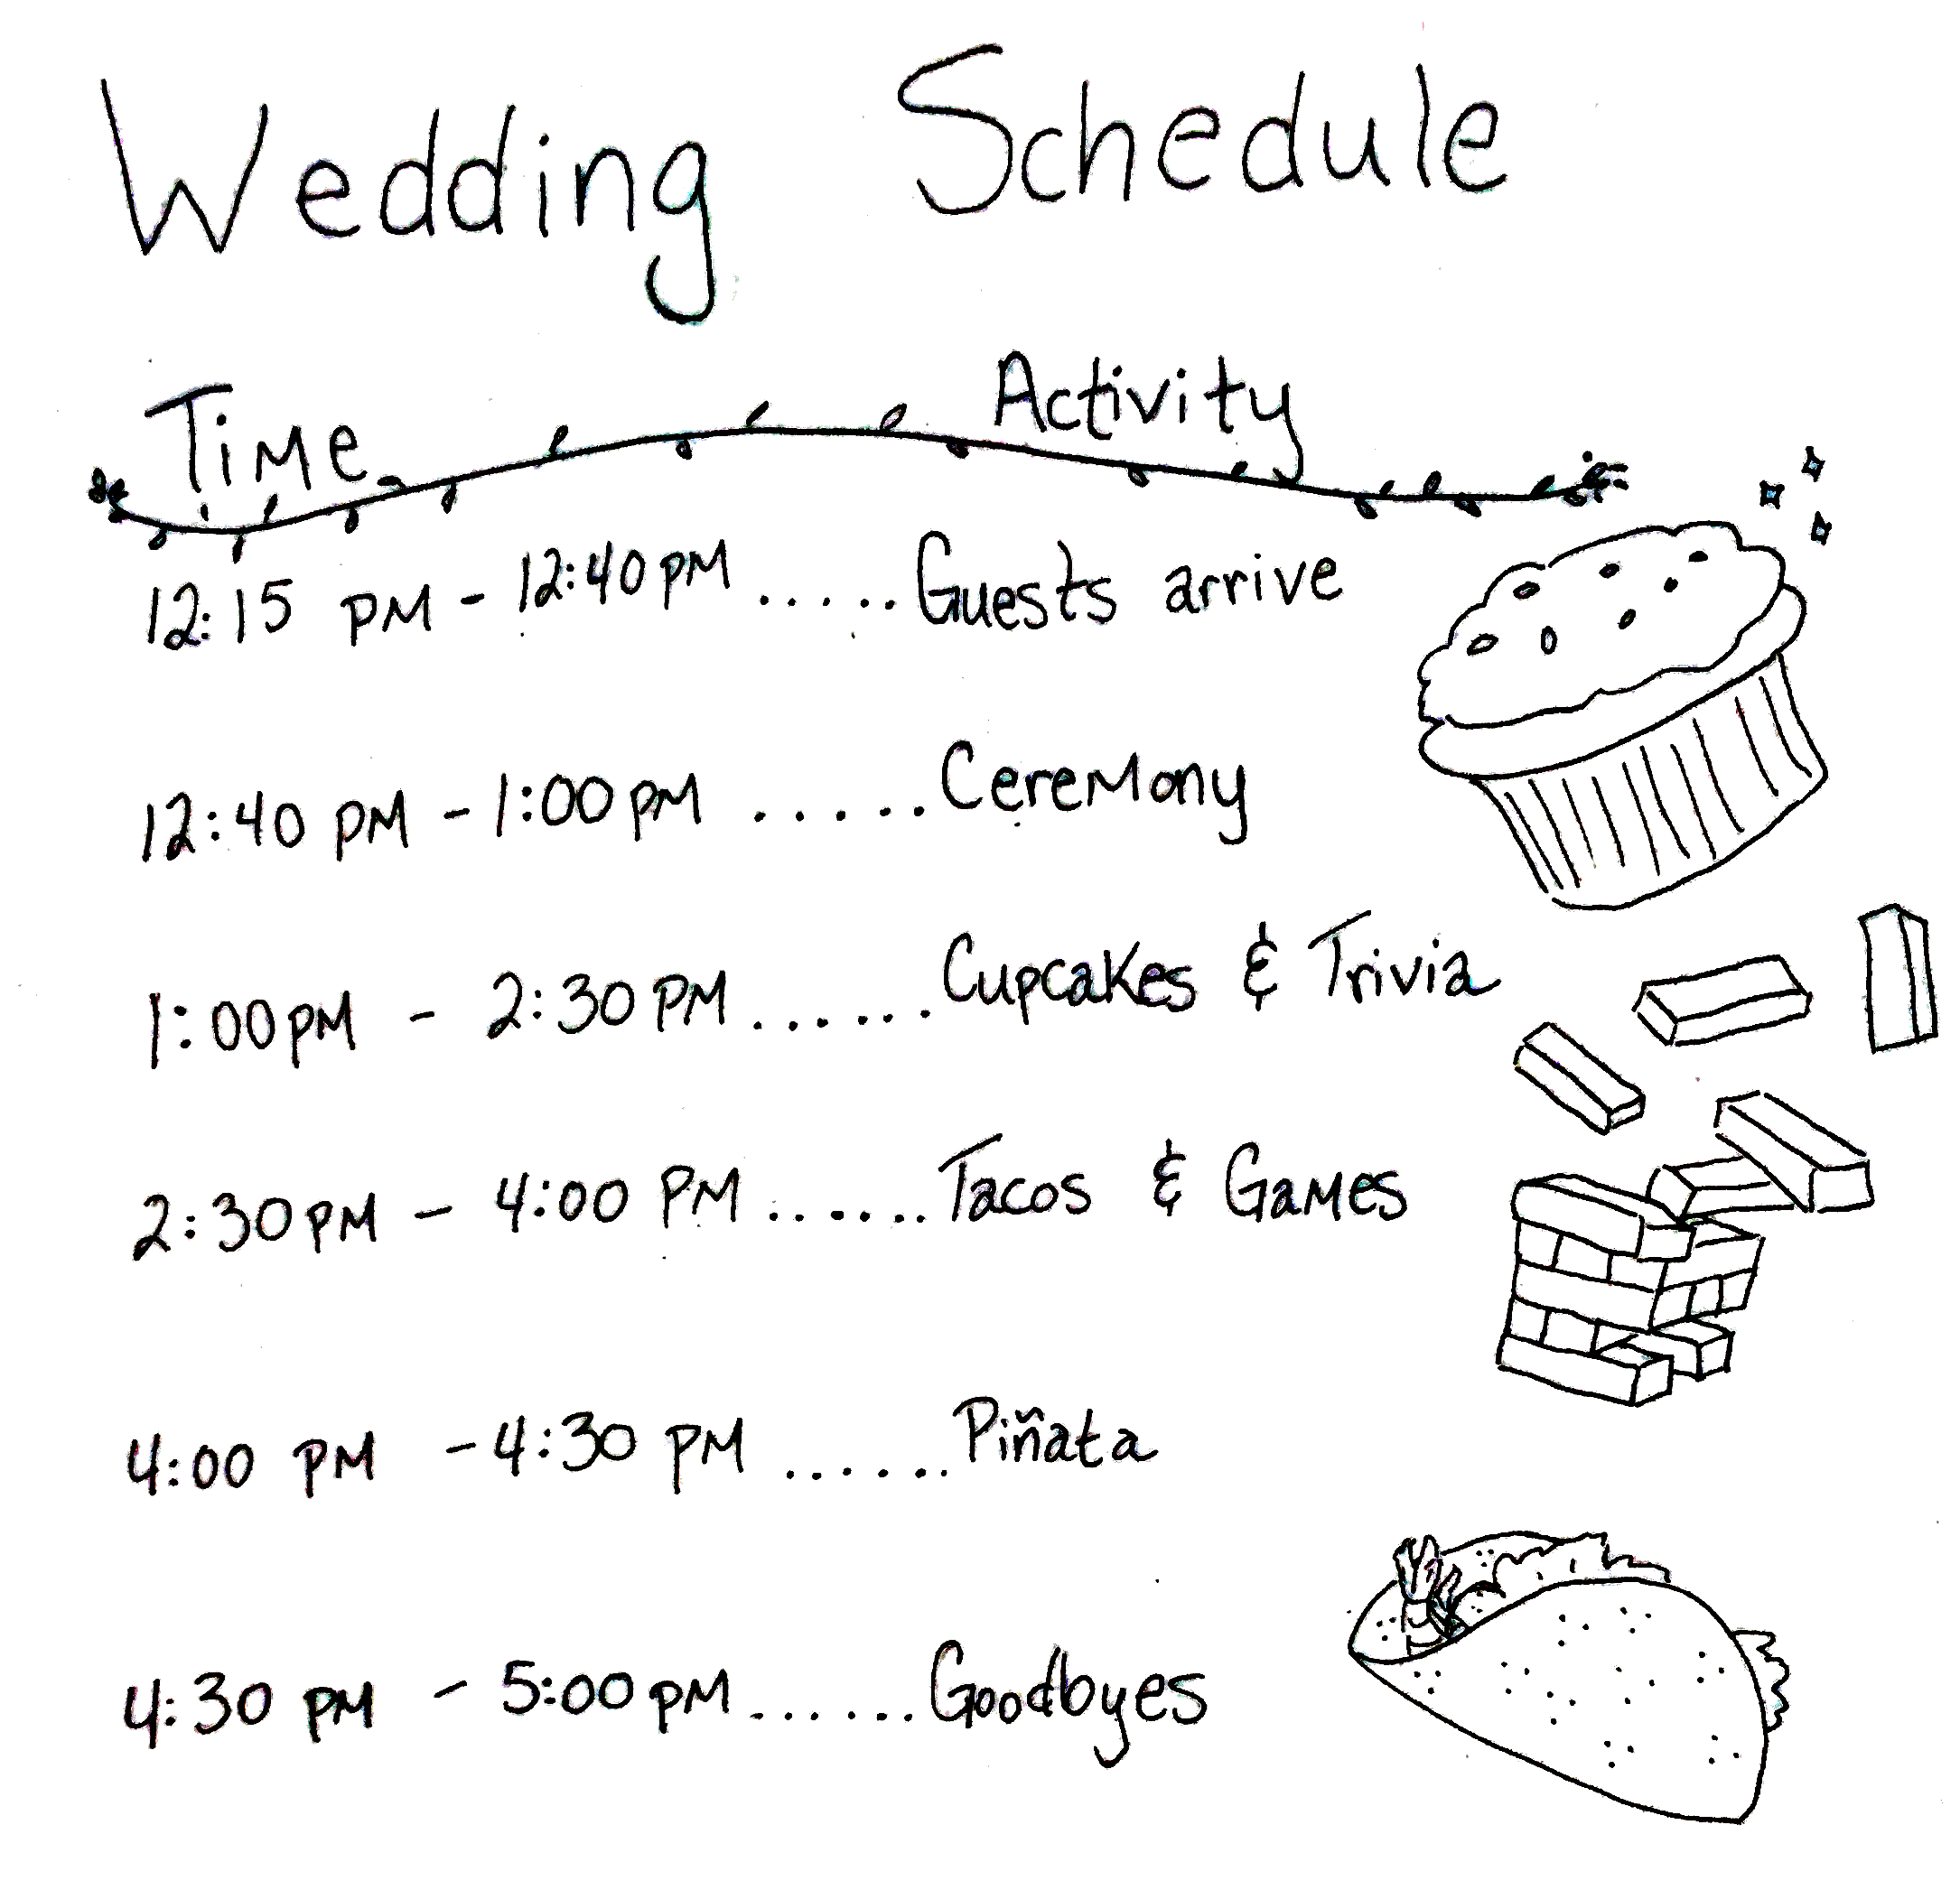 Wedding Schedule
Time Activity
12:15 PM - 12:40 PM ..... Guests arrive
12:40 PM - 1:00 PM ...... Ceremony
1:00 PM - 2:30 PM ...... Cupcakes & Trivia
2:30 PM - 4:00 PM ....... Tacos & Games
4:00 PM - 4:30 PM ....... Piñata
4:30 PM - 5:00 PM ...... Goodbyes